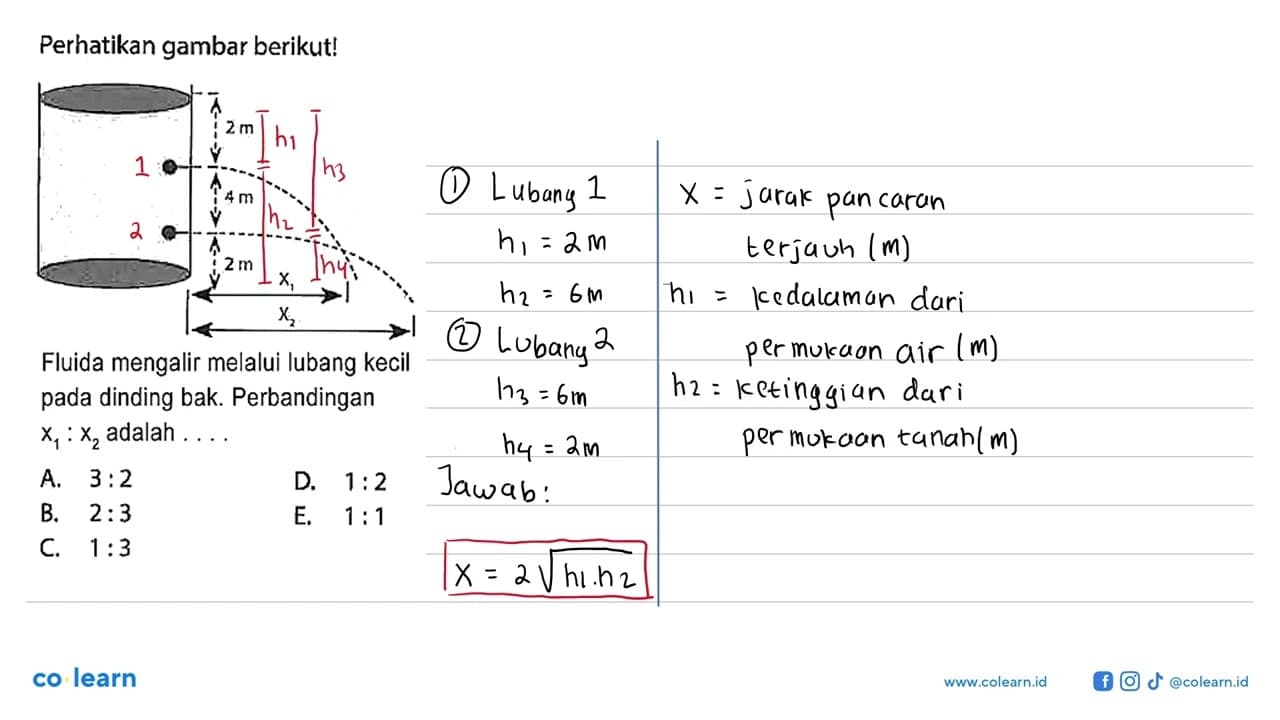 Perhatikan gambar berikut!
2 m
h1
1
h3
4 m
h2
2
2 m
h4
x1
x2
Fluida mengalir melalui lubang kecil
pada dinding bak. Perbandingan
x1 : x2 adalah . . . .
A. 3 : 2
D. 1 : 2
B. 2 : 3
E. 1 : 1
C. 1 : 3
① Lubang 1
h1 = 2m
h2 = 6m
② Lubang 2
h3 = 6m
h4 = 2m
Jawab:
x = 2√h1.h2
x = jarak pancaran
terjauh (m)
h1 = kedalaman dari
permukaan air (m)
h2 = ketinggian dari
permukaan tanah (m)
co learn
www.colearn.id
@colearn.id